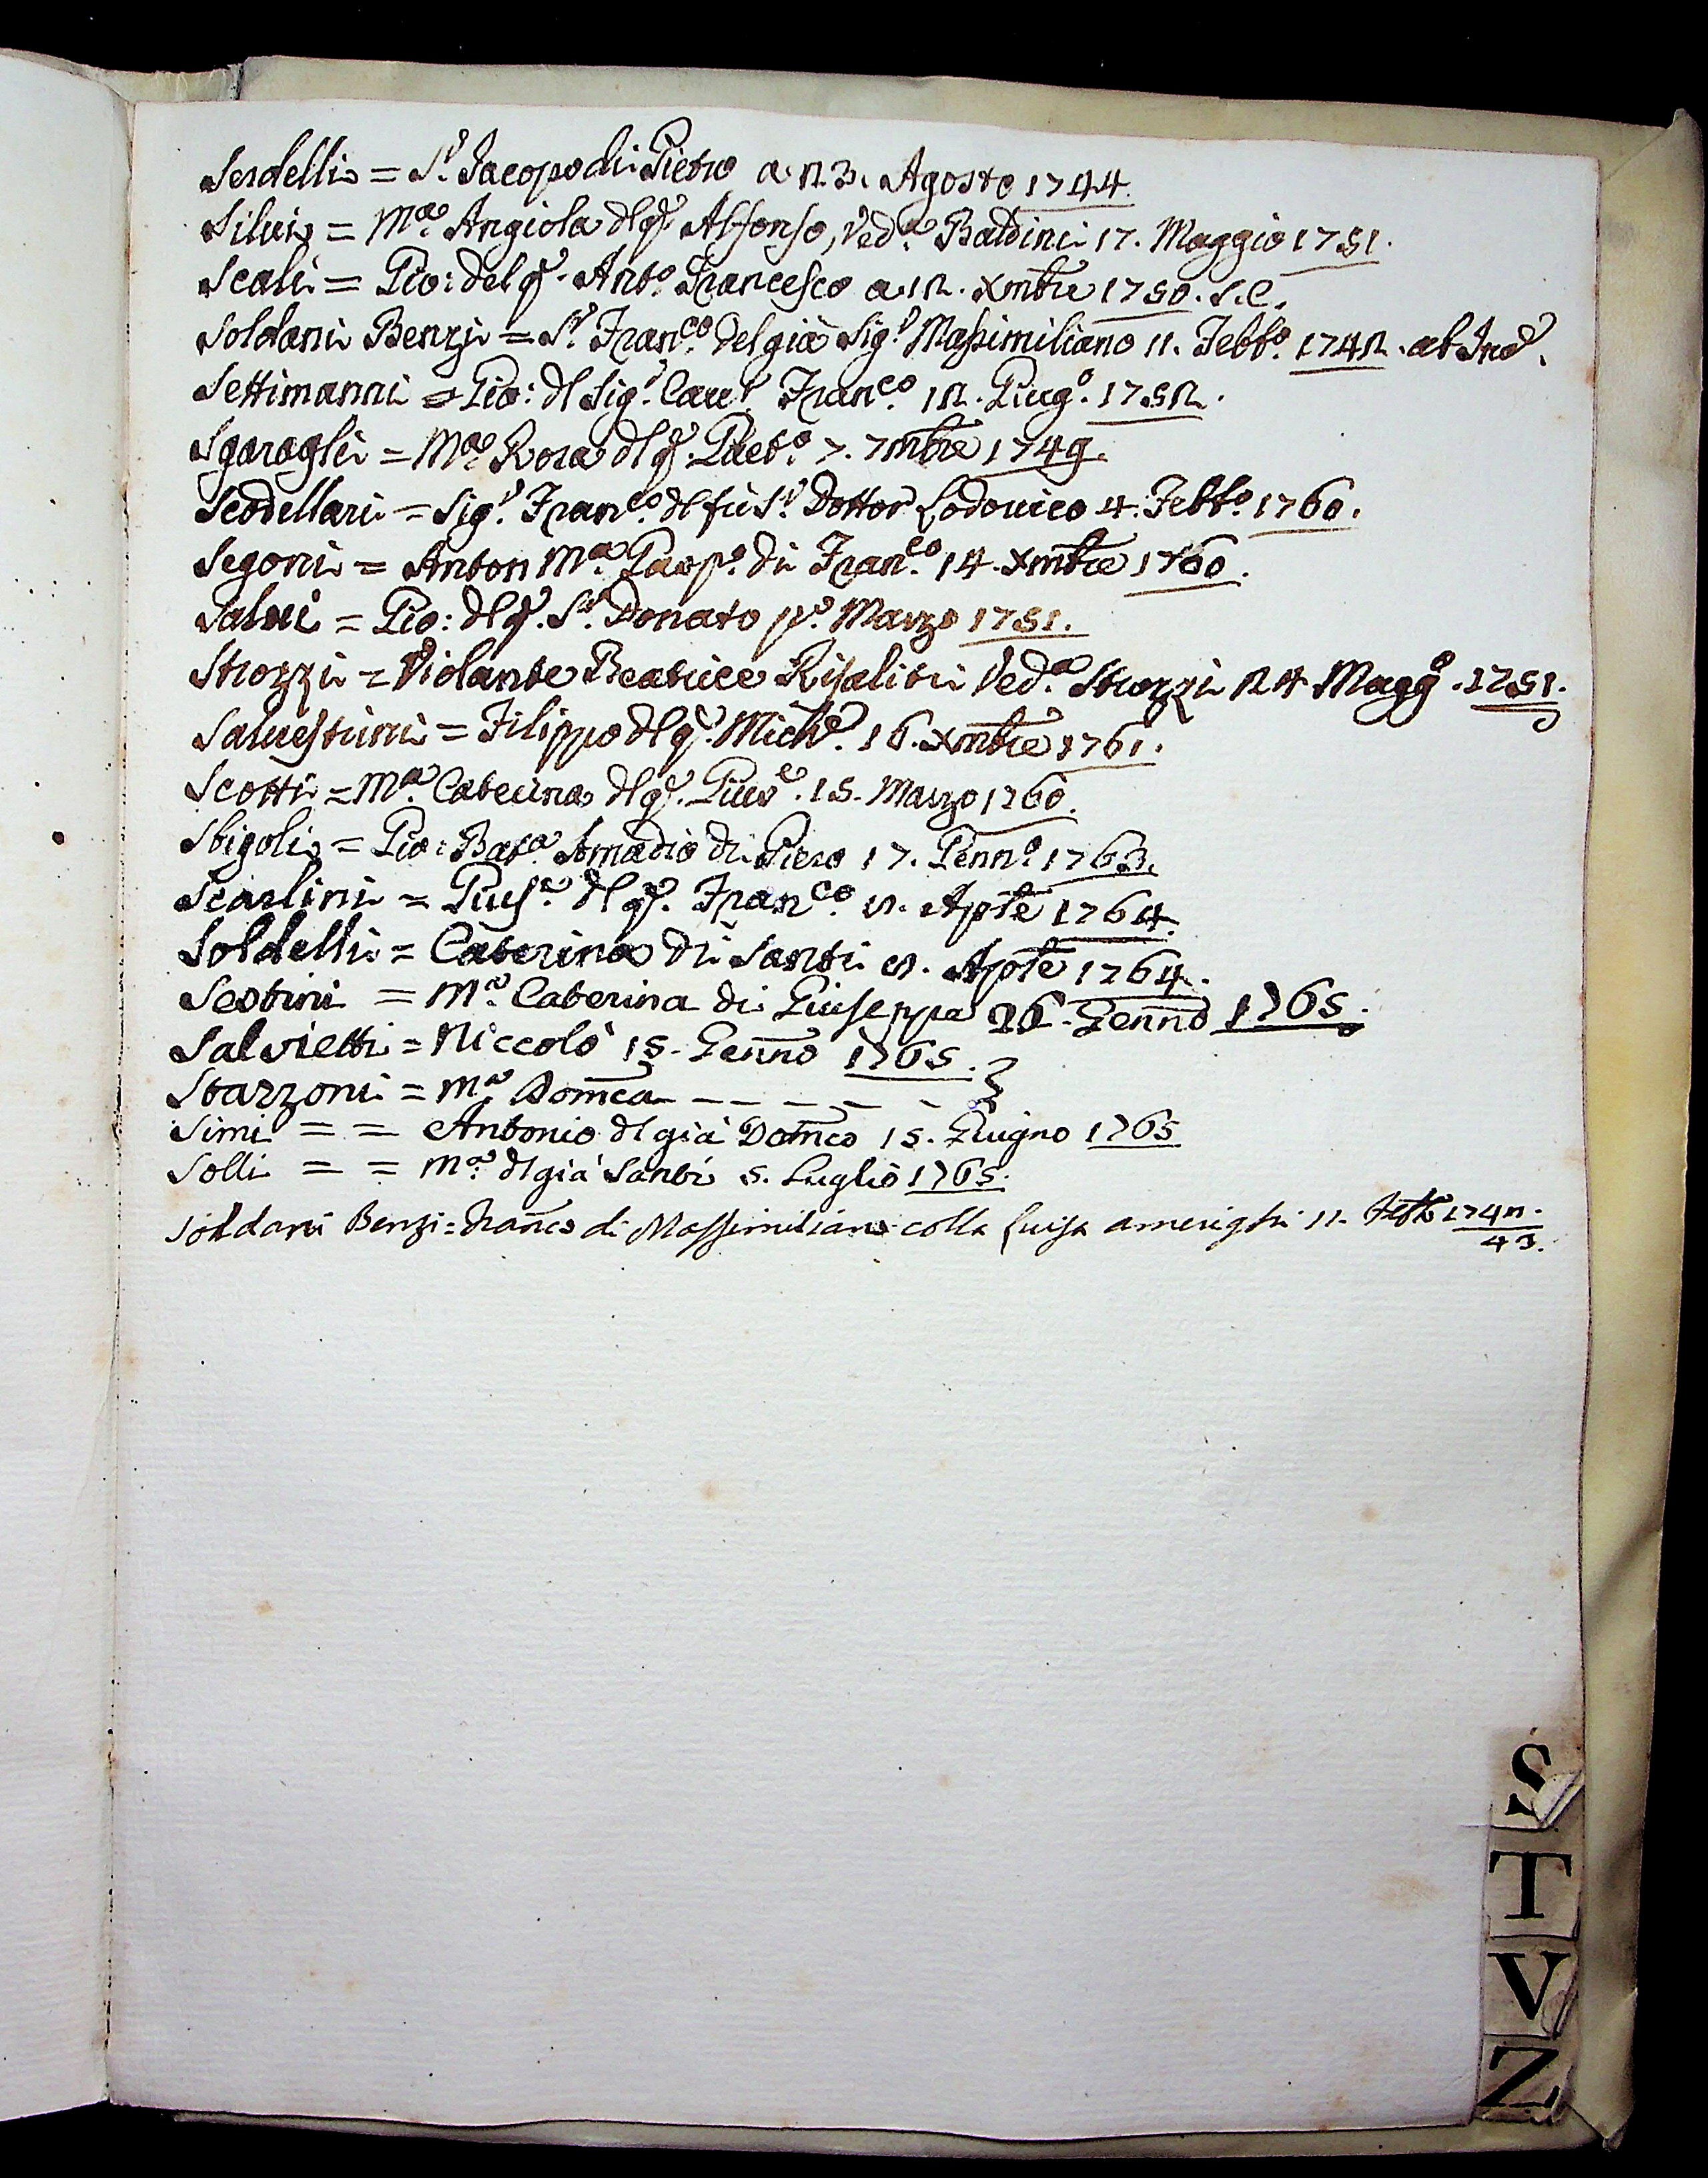 Serdelli = S.r Jacopo di Pietro a 23. Agosto 1744.
Silvi = M.a Angiola dl q. Alfonso, Ved.a Baldini 17. Maggio 1751.
Scali = Gio: del q. Ant.o Francesco a 12. Xmbre 1750. S.C.
Soldani Benzi = S.r Fran.co del già Sig.r Massimiliano 11. Febb.o 1742. ab Inc.
Settimanni = Gio: dl Sig.r Cav.r Fran.co 12. Giug.o 1752.
Sgaragli = M.a Rosa dl q. Gaet.o 7. 7mbre 1749.
Scodellari = Sig.r Fran.co dl fù S.r Dottor Lodovico 4. Febb.o 1760.
Segoni = Anton M.a Gasp.o di Fran.co 14. Xmbre 1760.
Salvi = Gio: dl q. S.r Donato p.o Marzo 1751.
Strozzi = Violante Beatrice Risaliti Ved.a Strozzi 24 Magg.o 1751.
Salvestrini = Filippo dl q. Mich.e 16. Xmbre 1761.
Scotti = M.a Caterina dl q. Gius.e 15. Marzo 1760.
Sbigoli = Gio: Bat.a Amadio di Piero 17. Genn.o 1763.
Scarlini = Gius.e dl q. Fran.co 2. Aprle 1764.
Soldelli = Caterina di Santi 2. Aprle 1764.
Sestini = M.a Caterina di Giuseppe 26. Genno 1765.
Salvietti = Niccolò 15. Genno 1765.
Starzoni = M.a Domca - - - - - -
Simi = = Antonio dl già Domco 15. Giugno 1765
Solli = = M.a dl già Santi 5. Luglio 1765.
Soldani Benzi = Franco di Massimiliano colla Luisa amerighi 11. Febbo 1742.
43.
S
T
V
Z